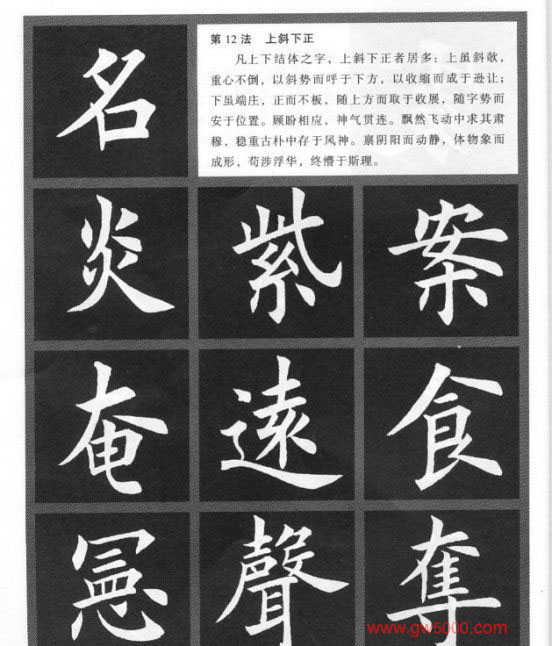 名
第12法 上斜下正
凡上下结体之字，上斜下正者居多；上虽斜欹，
重心不倒，以斜势而呼于下方，以收缩而成于逊让；
下虽端庄，正而不板，随上方而取于收展，随字势而
安于位置。顾盼相应，神气贯连。飘然飞动中求其肃
穆，稳重古朴中存于风神。禀阴阳而动静，体物象而
成形，苟涉浮华，终懵于斯理。
炎 紫 案
奄 遠 食
聲 奪
www.gw5000.com